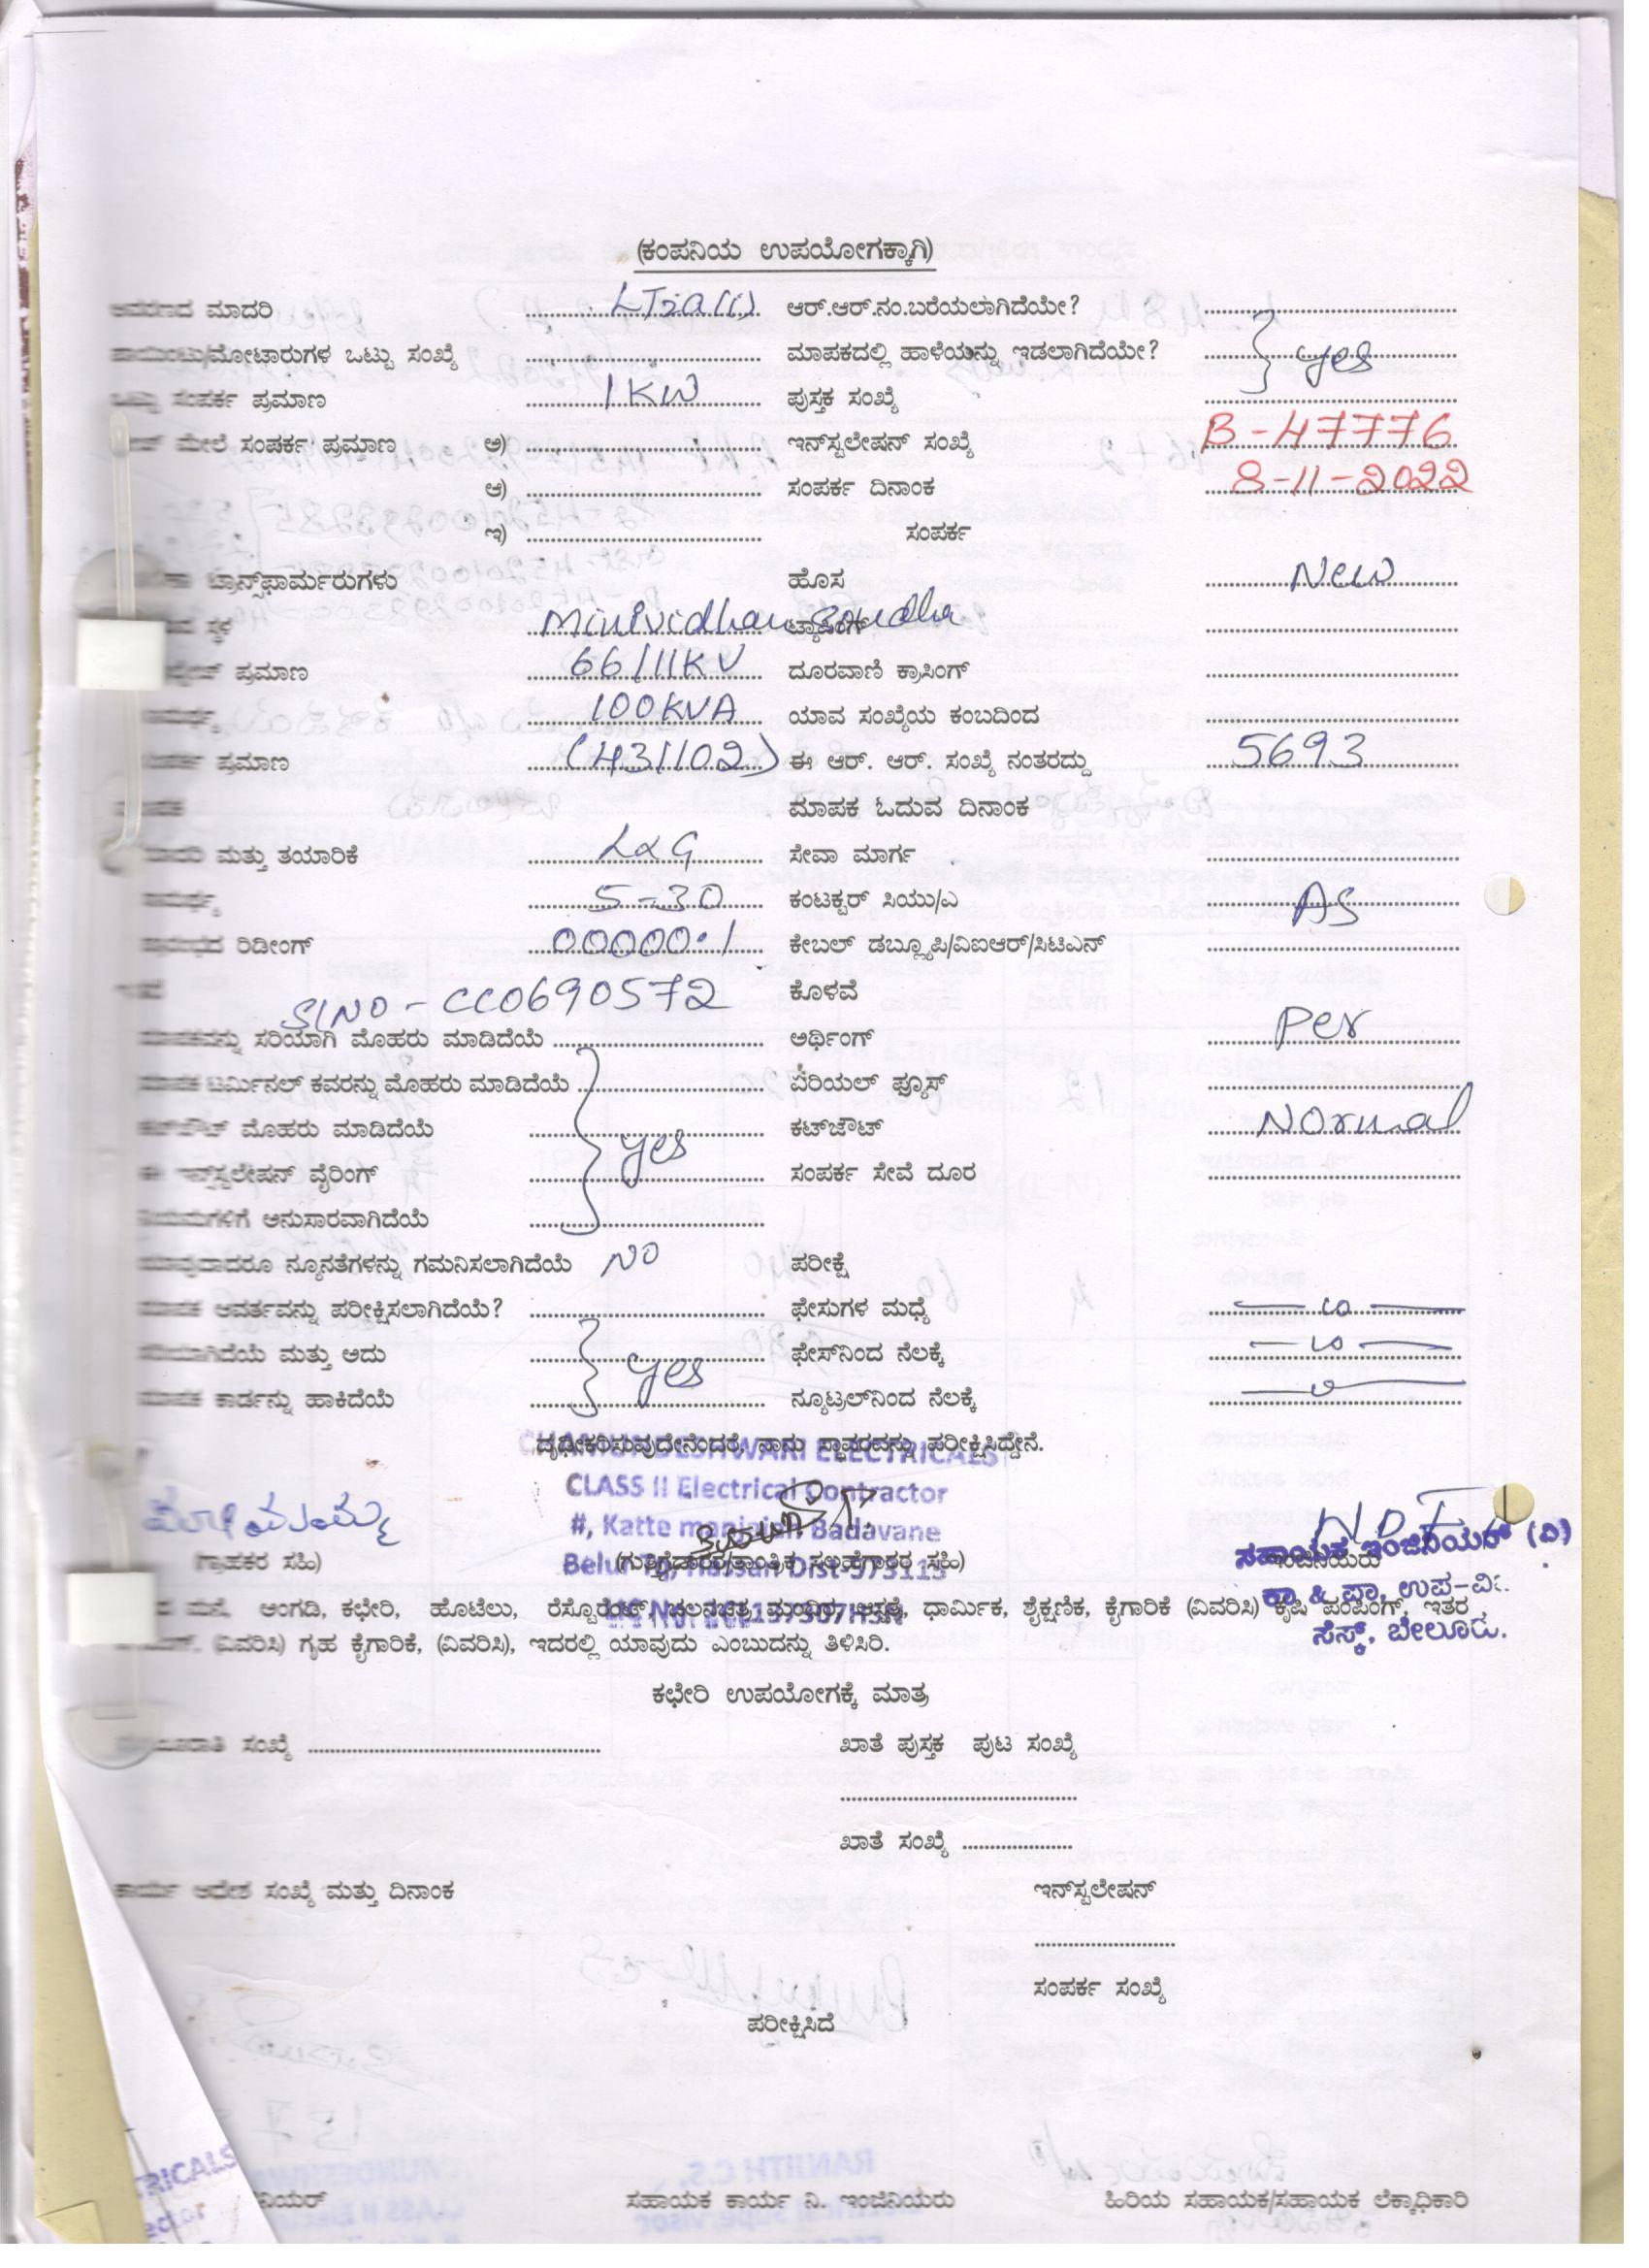 (ಕಂಪನಿಯ ಉಪಯೋಗಕ್ಕಾಗಿ)
ಮಾದರಿ ಆರ್.ಆರ್.ನಂ.ಬರೆಯಲಾಗಿದೆಯೇ?
ಪಾಯಿಂಟು/ಮೋಟಾರುಗಳ ಒಟ್ಟು ಸಂಖ್ಯೆ ಮಾಪಕದಲ್ಲಿ ಹಾಳೆಯನ್ನು ಇಡಲಾಗಿದೆಯೇ? yes
ಒಟ್ಟು ಸಂಪರ್ಕ ಪ್ರಮಾಣ 1 KW ಪುಸ್ತಕ ಸಂಖ್ಯೆ
ಮೇಲೆ ಸಂಪರ್ಕ ಪ್ರಮಾಣ ಅ) ಇನ್‌ಸ್ಟಲೇಷನ್ ಸಂಖ್ಯೆ B-47776
ಆ) ಸಂಪರ್ಕ ದಿನಾಂಕ 8-11-2022
ಇ) ಸಂಪರ್ಕ
ಟ್ರಾನ್ಸ್‌ಫಾರ್ಮರುಗಳು ಹೊಸ New
ಸ್ಥಳ Minividhan Soudha ಟ್ಯಾಪಿಂಗ್
ಪ್ರಮಾಣ 66/11KV ದೂರವಾಣಿ ಕ್ರಾಸಿಂಗ್
100KVA ಯಾವ ಸಂಖ್ಯೆಯ ಕಂಬದಿಂದ
ಪ್ರಮಾಣ (431102) ಈ ಆರ್. ಆರ್. ಸಂಖ್ಯೆ ನಂತರದ್ದು 5693
ಮಾಪಕ ಓದುವ ದಿನಾಂಕ
ಮತ್ತು ತಯಾರಿಕೆ L&G ಸೇವಾ ಮಾರ್ಗ
5-30 ಕಂಟಕ್ಟರ್ ಸಿಯು/ಎ AS
ರಿಡೀಂಗ್ 00000.1 ಕೇಬಲ್ ಡಬ್ಲ್ಯೂಪಿ/ವಿಐಆರ್/ಸಿಟಿಎನ್
Sl NO - CC0690572 ಕೊಳವೆ
ಮಾಪಕವನ್ನು ಸರಿಯಾಗಿ ಮೊಹರು ಮಾಡಿದೆಯೆ ಅರ್ಥಿಂಗ್ Per
ಮಾಪಕ ಟರ್ಮಿನಲ್ ಕವರನ್ನು ಮೊಹರು ಮಾಡಿದೆಯೆ ಏರಿಯಲ್ ಫ್ಯೂಸ್
ಕಟ್‌ಔಟ್ ಮೊಹರು ಮಾಡಿದೆಯೆ yes ಕಟ್‌ಜೌಟ್ Normal
ಈ ಇನ್‌ಸ್ಟಲೇಷನ್ ವೈರಿಂಗ್ ಸಂಪರ್ಕ ಸೇವೆ ದೂರ
ನಿಯಮಗಳಿಗೆ ಅನುಸಾರವಾಗಿದೆಯೆ
ಯಾವುದಾದರೂ ನ್ಯೂನತೆಗಳನ್ನು ಗಮನಿಸಲಾಗಿದೆಯೆ NO ಪರೀಕ್ಷೆ
ಮಾಪಕ ಆವರ್ತವನ್ನು ಪರೀಕ್ಷಿಸಲಾಗಿದೆಯೆ? ಫೇಸುಗಳ ಮಧ್ಯೆ
ಸರಿಯಾಗಿದೆಯೆ ಮತ್ತು ಅದು yes ಫೇಸ್‌ನಿಂದ ನೆಲಕ್ಕೆ
ಮಾಪಕ ಕಾರ್ಡನ್ನು ಹಾಕಿದೆಯೆ ನ್ಯೂಟ್ರಲ್‌ನಿಂದ ನೆಲಕ್ಕೆ
ದೃಢೀಕರಿಸುವುದೇನೆಂದರೆ, ನಾನು ಸ್ಥಾವರವನ್ನು ಪರೀಕ್ಷಿಸಿದ್ದೇನೆ.
ELECTRICALS
CLASS II Electrical Contractor
#, Katte manjaiah Badavane
(ಗ್ರಾಹಕರ ಸಹಿ) (ಗುತ್ತಿಗೆದಾರರ/ತಾಂತ್ರಿಕ ಸಲಹೆಗಾರರ ಸಹಿ) ಇಂಜಿನಿಯರು
Belur Tq, Hassan Dist-573115
ಸಹಾಯಕ ಇಂಜಿನಿಯರ್ (ವಿ)
ಕಾ & ಪಾ, ಉಪ-ವಿ.
ಸೆಸ್ಕ್, ಬೇಲೂರು.
ಮನೆ, ಅಂಗಡಿ, ಕಛೇರಿ, ಹೊಟೆಲು, ರೆಸ್ಟೋರೆಂಟ್, ಚಲನಚಿತ್ರ ಮಂದಿರ, ಆಸ್ಪತ್ರೆ, ಧಾರ್ಮಿಕ, ಶೈಕ್ಷಣಿಕ, ಕೈಗಾರಿಕೆ (ವಿವರಿಸಿ) ಕೃಷಿ ಪಂಪಿಂಗ್, ಇತರ
(ವಿವರಿಸಿ) ಗೃಹ ಕೈಗಾರಿಕೆ, (ವಿವರಿಸಿ), ಇದರಲ್ಲಿ ಯಾವುದು ಎಂಬುದನ್ನು ತಿಳಿಸಿರಿ.
ಕಛೇರಿ ಉಪಯೋಗಕ್ಕೆ ಮಾತ್ರ
ಸಂಖ್ಯೆ ಖಾತೆ ಪುಸ್ತಕ ಪುಟ ಸಂಖ್ಯೆ
ಖಾತೆ ಸಂಖ್ಯೆ
ಕಾರ್ಯ ಆದೇಶ ಸಂಖ್ಯೆ ಮತ್ತು ದಿನಾಂಕ ಇನ್‌ಸ್ಟಲೇಷನ್
ಸಂಪರ್ಕ ಸಂಖ್ಯೆ
ಪರೀಕ್ಷಿಸಿದೆ
ಸಹಾಯಕ ಕಾರ್ಯ ನಿ. ಇಂಜಿನಿಯರು ಹಿರಿಯ ಸಹಾಯಕ/ಸಹಾಯಕ ಲೆಕ್ಕಾಧಿಕಾರಿ